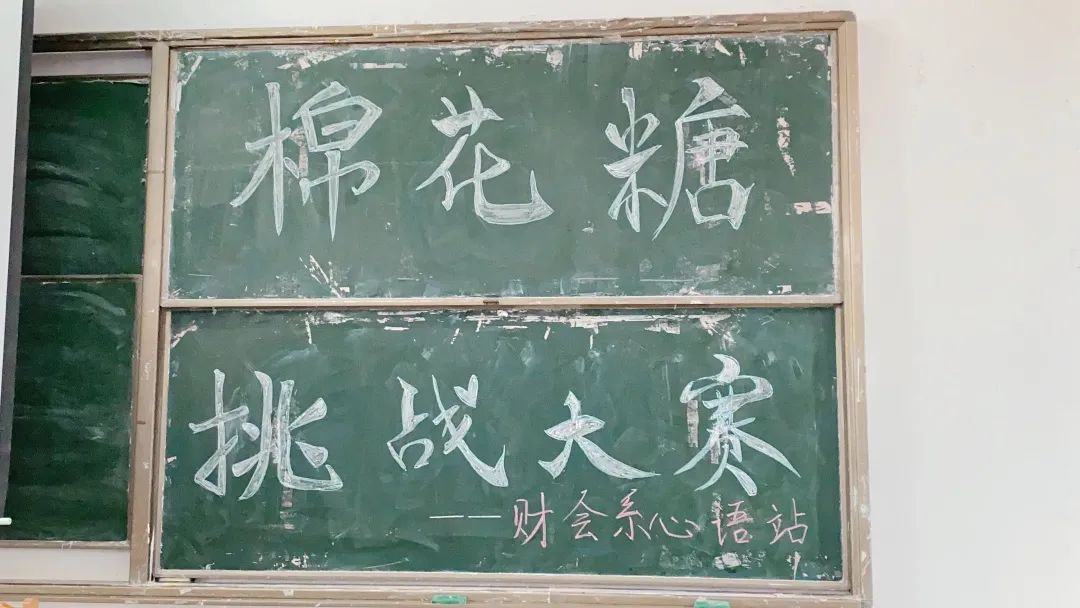 棉花糖
挑战大赛
——财会系心语站